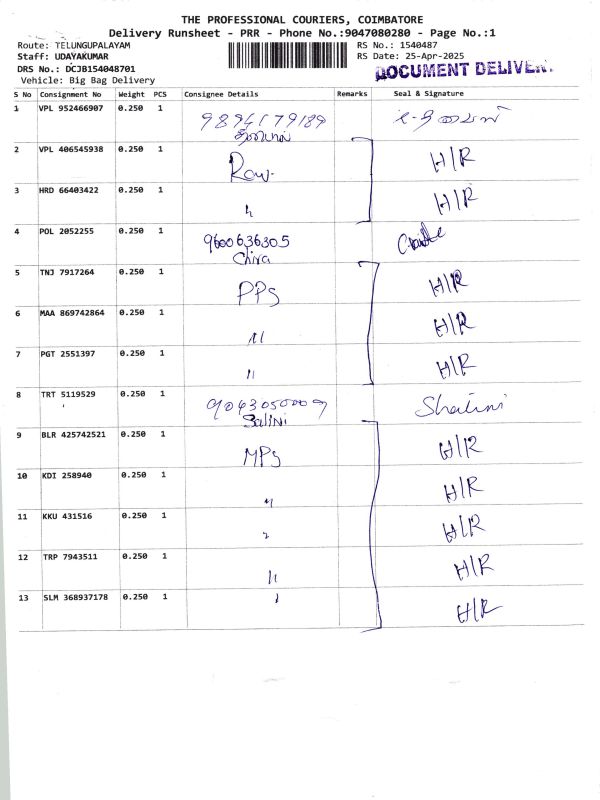 THE PROFESSIONAL COURIERS, COIMBATORE
Delivery Runsheet - PRR - Phone No.:9047080280 - Page No.:1
Route: TELUNGUPALAYAM RS No.: 1540487
Staff: UDAYAKUMAR RS Date: 25-Apr-2025
DRS No.: DCJB154048701 DOCUMENT DELIVER
Vehicle: Big Bag Delivery
S No Consignment No Weight PCS Consignee Details Remarks Seal & Signature
1 VPL 952466907 0.250 1 9894179189
2 VPL 406545938 0.250 1 H/R
3 HRD 66403422 0.250 1 " H/R
4 POL 2052255 0.250 1 9600636305
5 TNJ 7917264 0.250 1 PPS H/R
6 MAA 869742864 0.250 1 " H/R
7 PGT 2551397 0.250 1 " H/R
8 TRT 5119529 0.250 1 9043050009 Shalini
Salini
9 BLR 425742521 0.250 1 MPS H/R
10 KDI 258940 0.250 1 " H/R
11 KKU 431516 0.250 1 " H/R
12 TRP 7943511 0.250 1 " H/R
13 SLM 368937178 0.250 1 " H/R